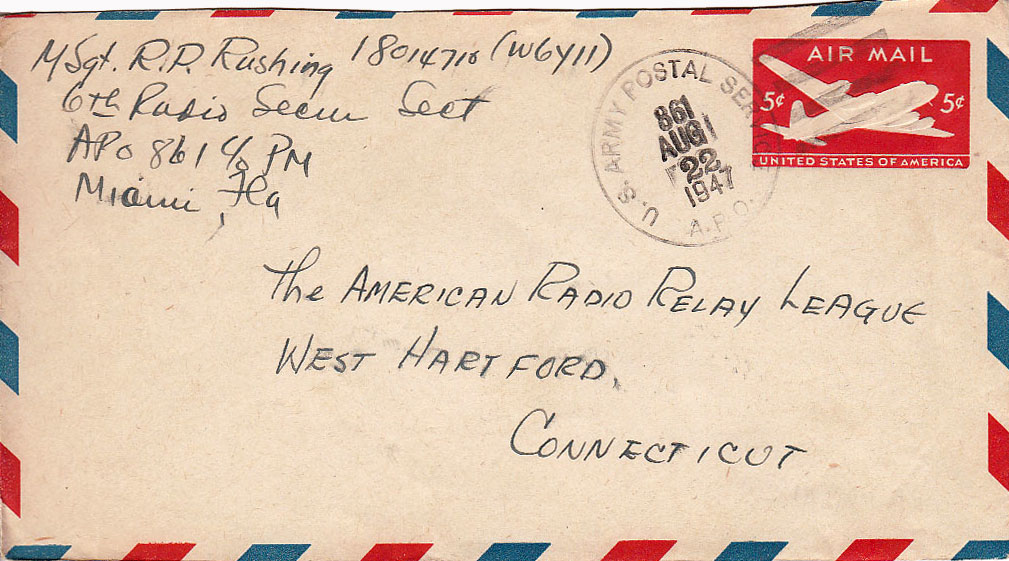 MSgt. R.P. Rushing 18014710 (W6YII)
6th Radio Secur Sect
APO 861 c/o PM
Miami, Fla
U.S. ARMY POSTAL SERVICE
861
AUG
22
1947
A.P.O.
AIR MAIL
5¢ 5¢
UNITED STATES OF AMERICA
The AMERICAN RADIO RELAY LEAGUE
WEST HARTFORD,
CONNECTICUT